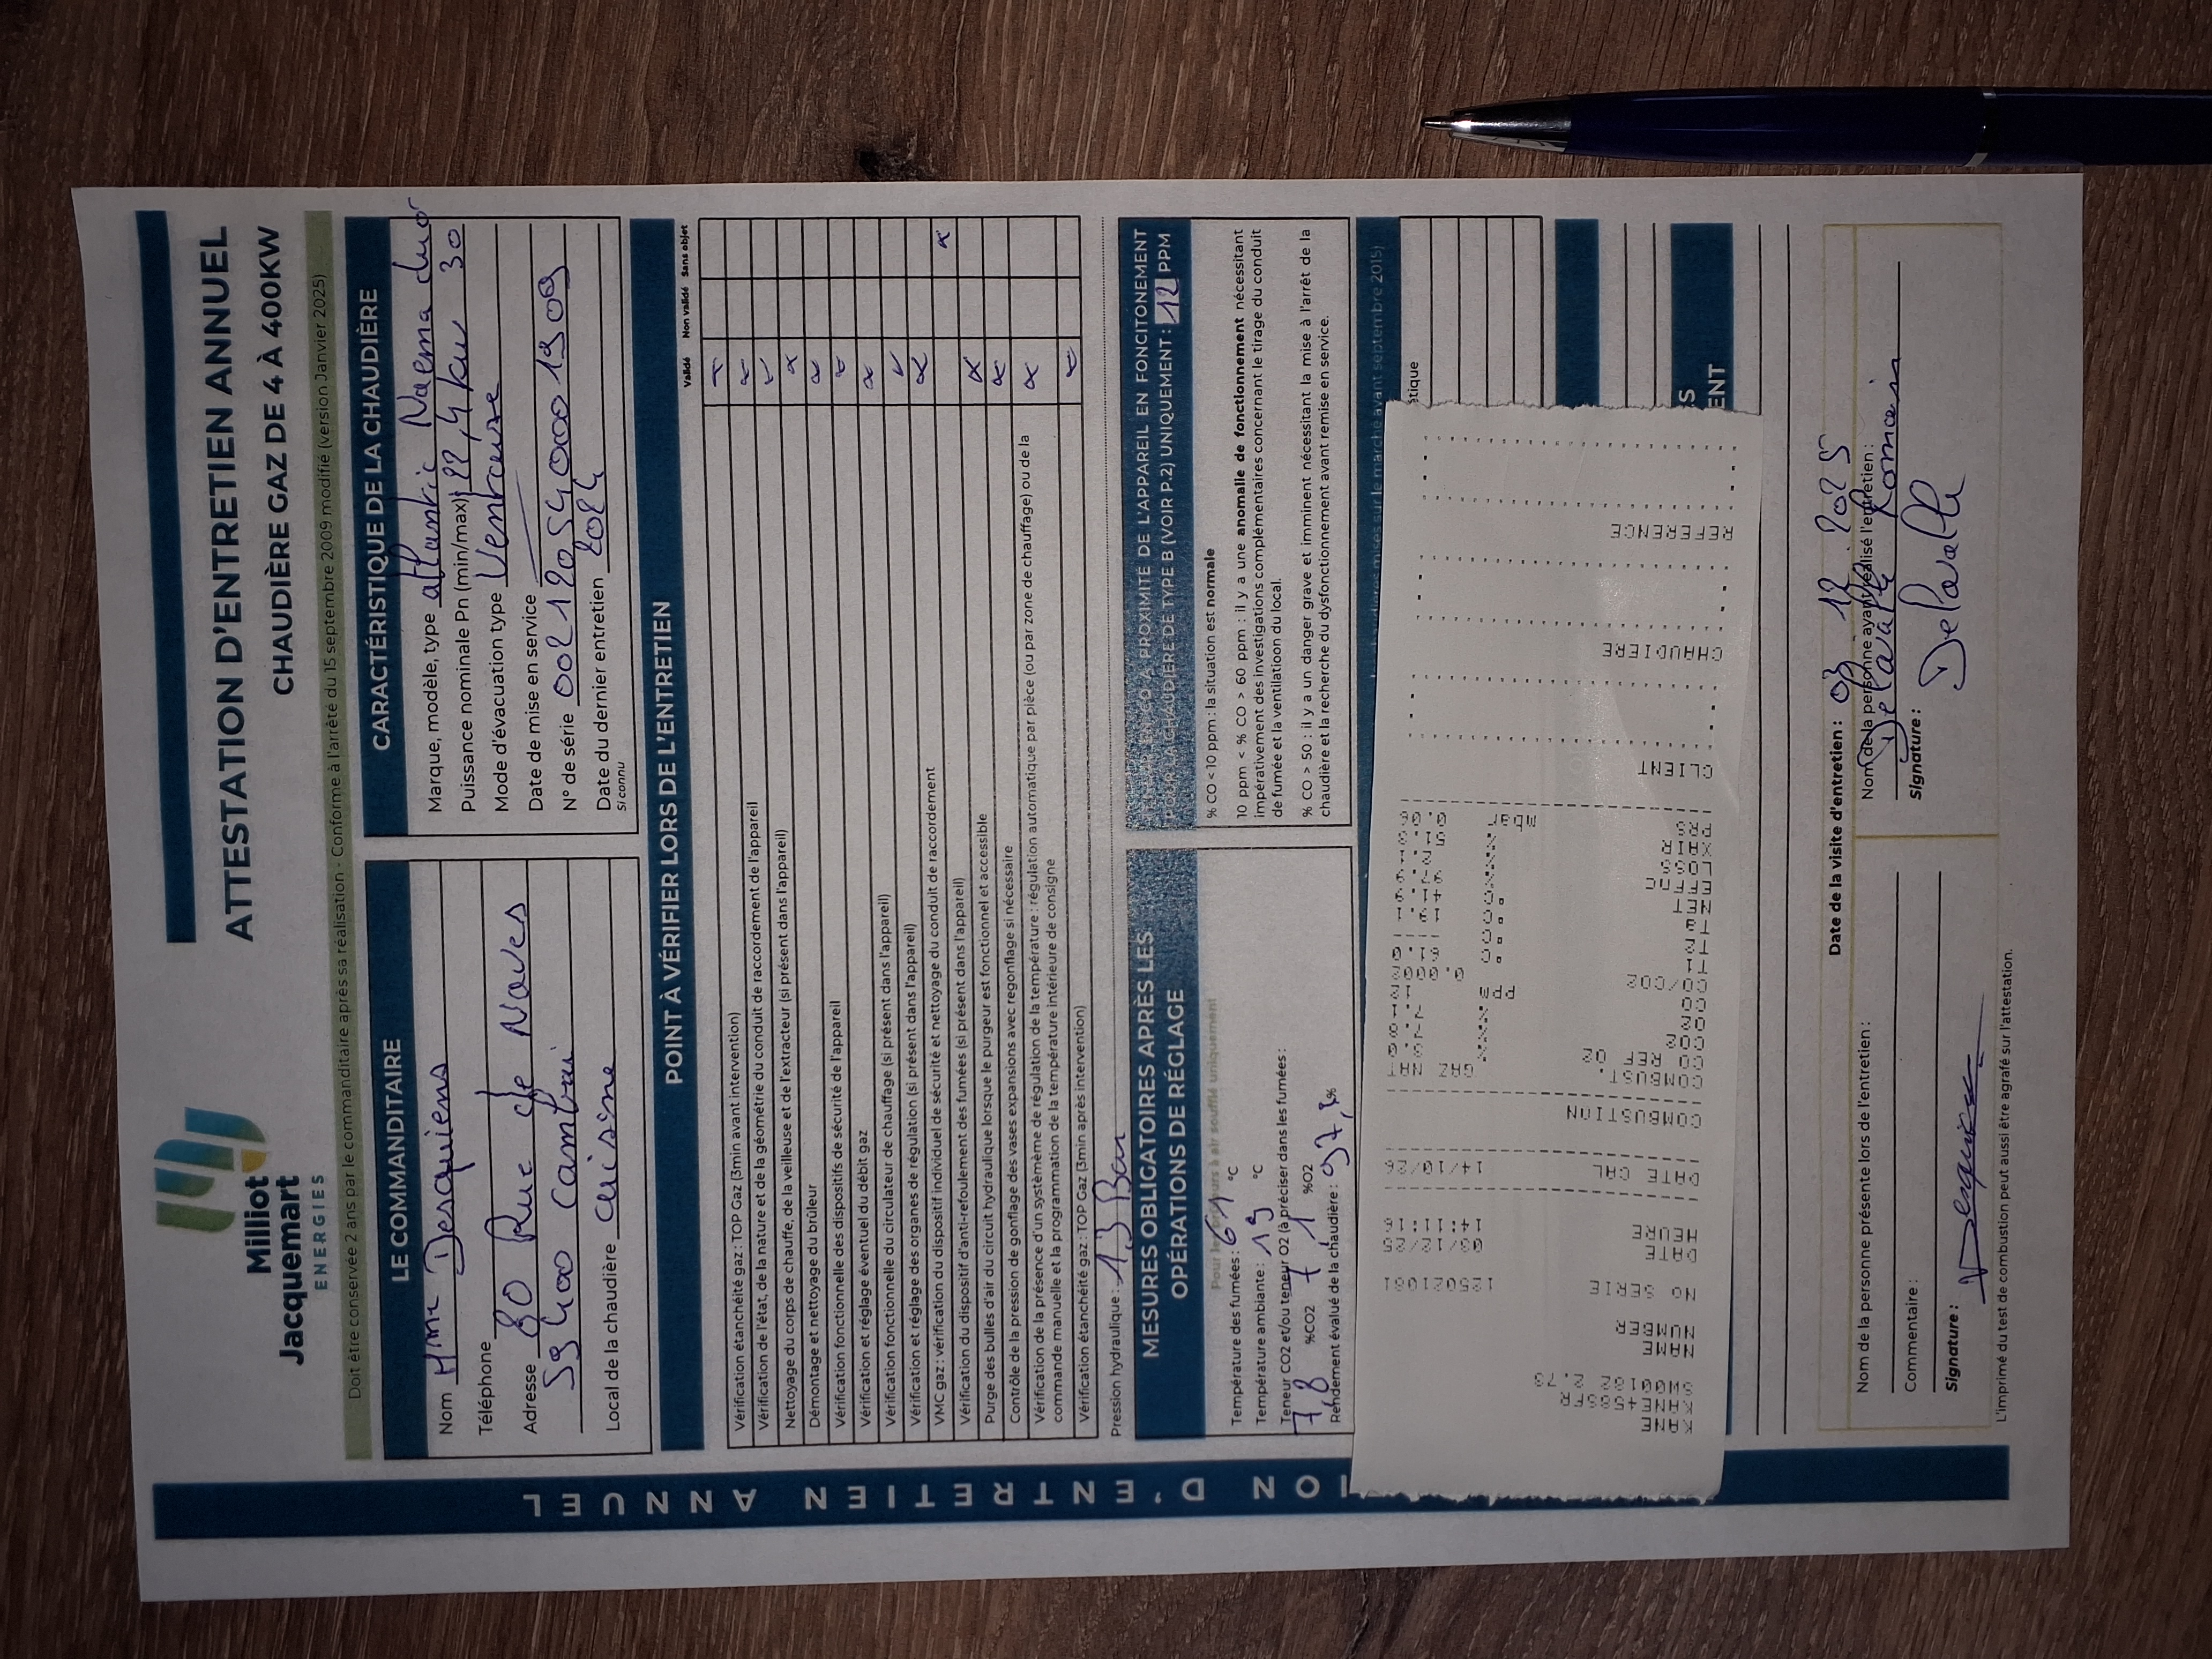 Milliot
Jacquemart
ENERGIES
ATTESTATION D'ENTRETIEN ANNUEL
CHAUDIÈRE GAZ DE 4 À 400KW
Doit être conservée 2 ans par le commanditaire après sa réalisation - Conforme à l'arrêté du 15 septembre 2009 modifié (version Janvier 2025)
LE COMMANDITAIRE
Nom Mme Desquiens
Téléphone
Adresse 80 Rue de Naves
59400 Cambrai
Local de la chaudière Cuisine
CARACTÉRISTIQUE DE LA CHAUDIÈRE
Marque, modèle, type atlantic Naema duo
Puissance nominale Pn (min/max) 22,4 kw 30
Mode d'évacuation type Ventouse
Date de mise en service
N° de série
Date du dernier entretien 2024
Si connu
POINT À VÉRIFIER LORS DE L'ENTRETIEN
Validé Non validé Sans objet
Vérification étanchéité gaz : TOP Gaz (3min avant intervention)
Vérification de l'état, de la nature et de la géométrie du conduit de raccordement de l'appareil
Nettoyage du corps de chauffe, de la veilleuse et de l'extracteur (si présent dans l'appareil)
Démontage et nettoyage du brûleur
Vérification fonctionnelle des dispositifs de sécurité de l'appareil
Vérification et réglage éventuel du débit gaz
Vérification fonctionnelle du circulateur de chauffage (si présent dans l'appareil)
Vérification et réglage des organes de régulation (si présent dans l'appareil)
VMC gaz : vérification du dispositif individuel de sécurité et nettoyage du conduit de raccordement
Vérification du dispositif d'anti-refoulement des fumées (si présent dans l'appareil)
Purge des bulles d'air du circuit hydraulique lorsque le purgeur est fonctionnel et accessible
Contrôle de la pression de gonflage des vases expansions avec regonflage si nécessaire
Vérification de la présence d'un systèmème de régulation de la température : régulation automatique par pièce (ou par zone de chauffage) ou de la
commande manuelle et la programmation de la température intérieure de consigne
Vérification étanchéité gaz : TOP Gaz (3min après intervention)
Pression hydraulique : 1.3 Bar
MESURES OBLIGATOIRES APRÈS LES
OPÉRATIONS DE RÉGLAGE
Température des fumées : 61 °C
Température ambiante : 19 °C
Teneur CO2 et/ou teneur O2 (à préciser dans les fumées :
7,8 %CO2 7,1 %O2
Rendement évalué de la chaudière : 97,9 %
À PROXIMITÉ DE L'APPAREIL EN FONCITONEMENT
CHAUDIÈRE DE TYPE B (VOIR P.2) UNIQUEMENT : 12 PPM
% CO < 10 ppm : la situation est normale
10 ppm < % CO > 60 ppm : il y a une anomalie de fonctionnement nécessitant
impérativement des investigations complémentaires concernant le tirage du conduit
de fumée et la ventilatioon du local.
% CO > 50 : il y a un danger grave et imminent nécessitant la mise à l'arrêt de la
chaudière et la recherche du dysfonctionnement avant remise en service.
mises sur le marché avant septembre 2015)
étique
S
ENT
ION D'ENTRETIEN ANNUEL
KANE
NAME
NUMBER
NO SERIE 125021081
DATE 03/12/25
HEURE 14:11:16
DATE CAL 14/10/26
COMBUSTION
COMBUST. GAZ NAT
CO REF O2
CO2 %
O2 %
CO ppm 12
CO/CO2
T1 °C 61.0
T2 °C
Ta °C
NET °C
EFFNC %
LOSS %
XAIR %
PRS mbar 0.06
CLIENT
CHAUDIERE
REFERENCE
Date de la visite d'entretien : 03 12 2025
Nom de la personne présente lors de l'entretien :
Commentaire :
Signature : Desquiens
Nom de la personne ayant réalisé l'entretien :
Delavalle Romain
Signature : Delavalle
L'imprimé du test de combustion peut aussi être agrafé sur l'attestation.